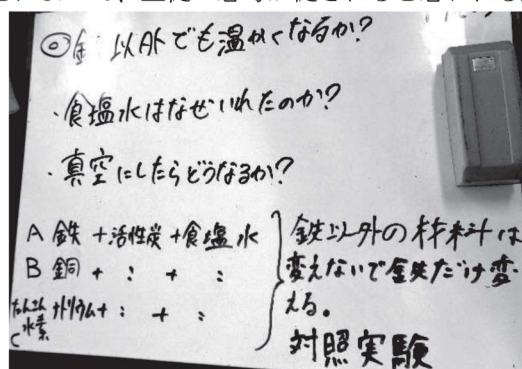 ◎鉄以外でも温かくなるか?
・食塩水はなぜいれたのか?
・真空にしたらどうなるか?
A 鉄 +活性炭+食塩水
B 銅 + : + :
C ナトリウム+ : + :
水素
鉄以外の材料は
変えないで鉄だけ変
える。
対照実験